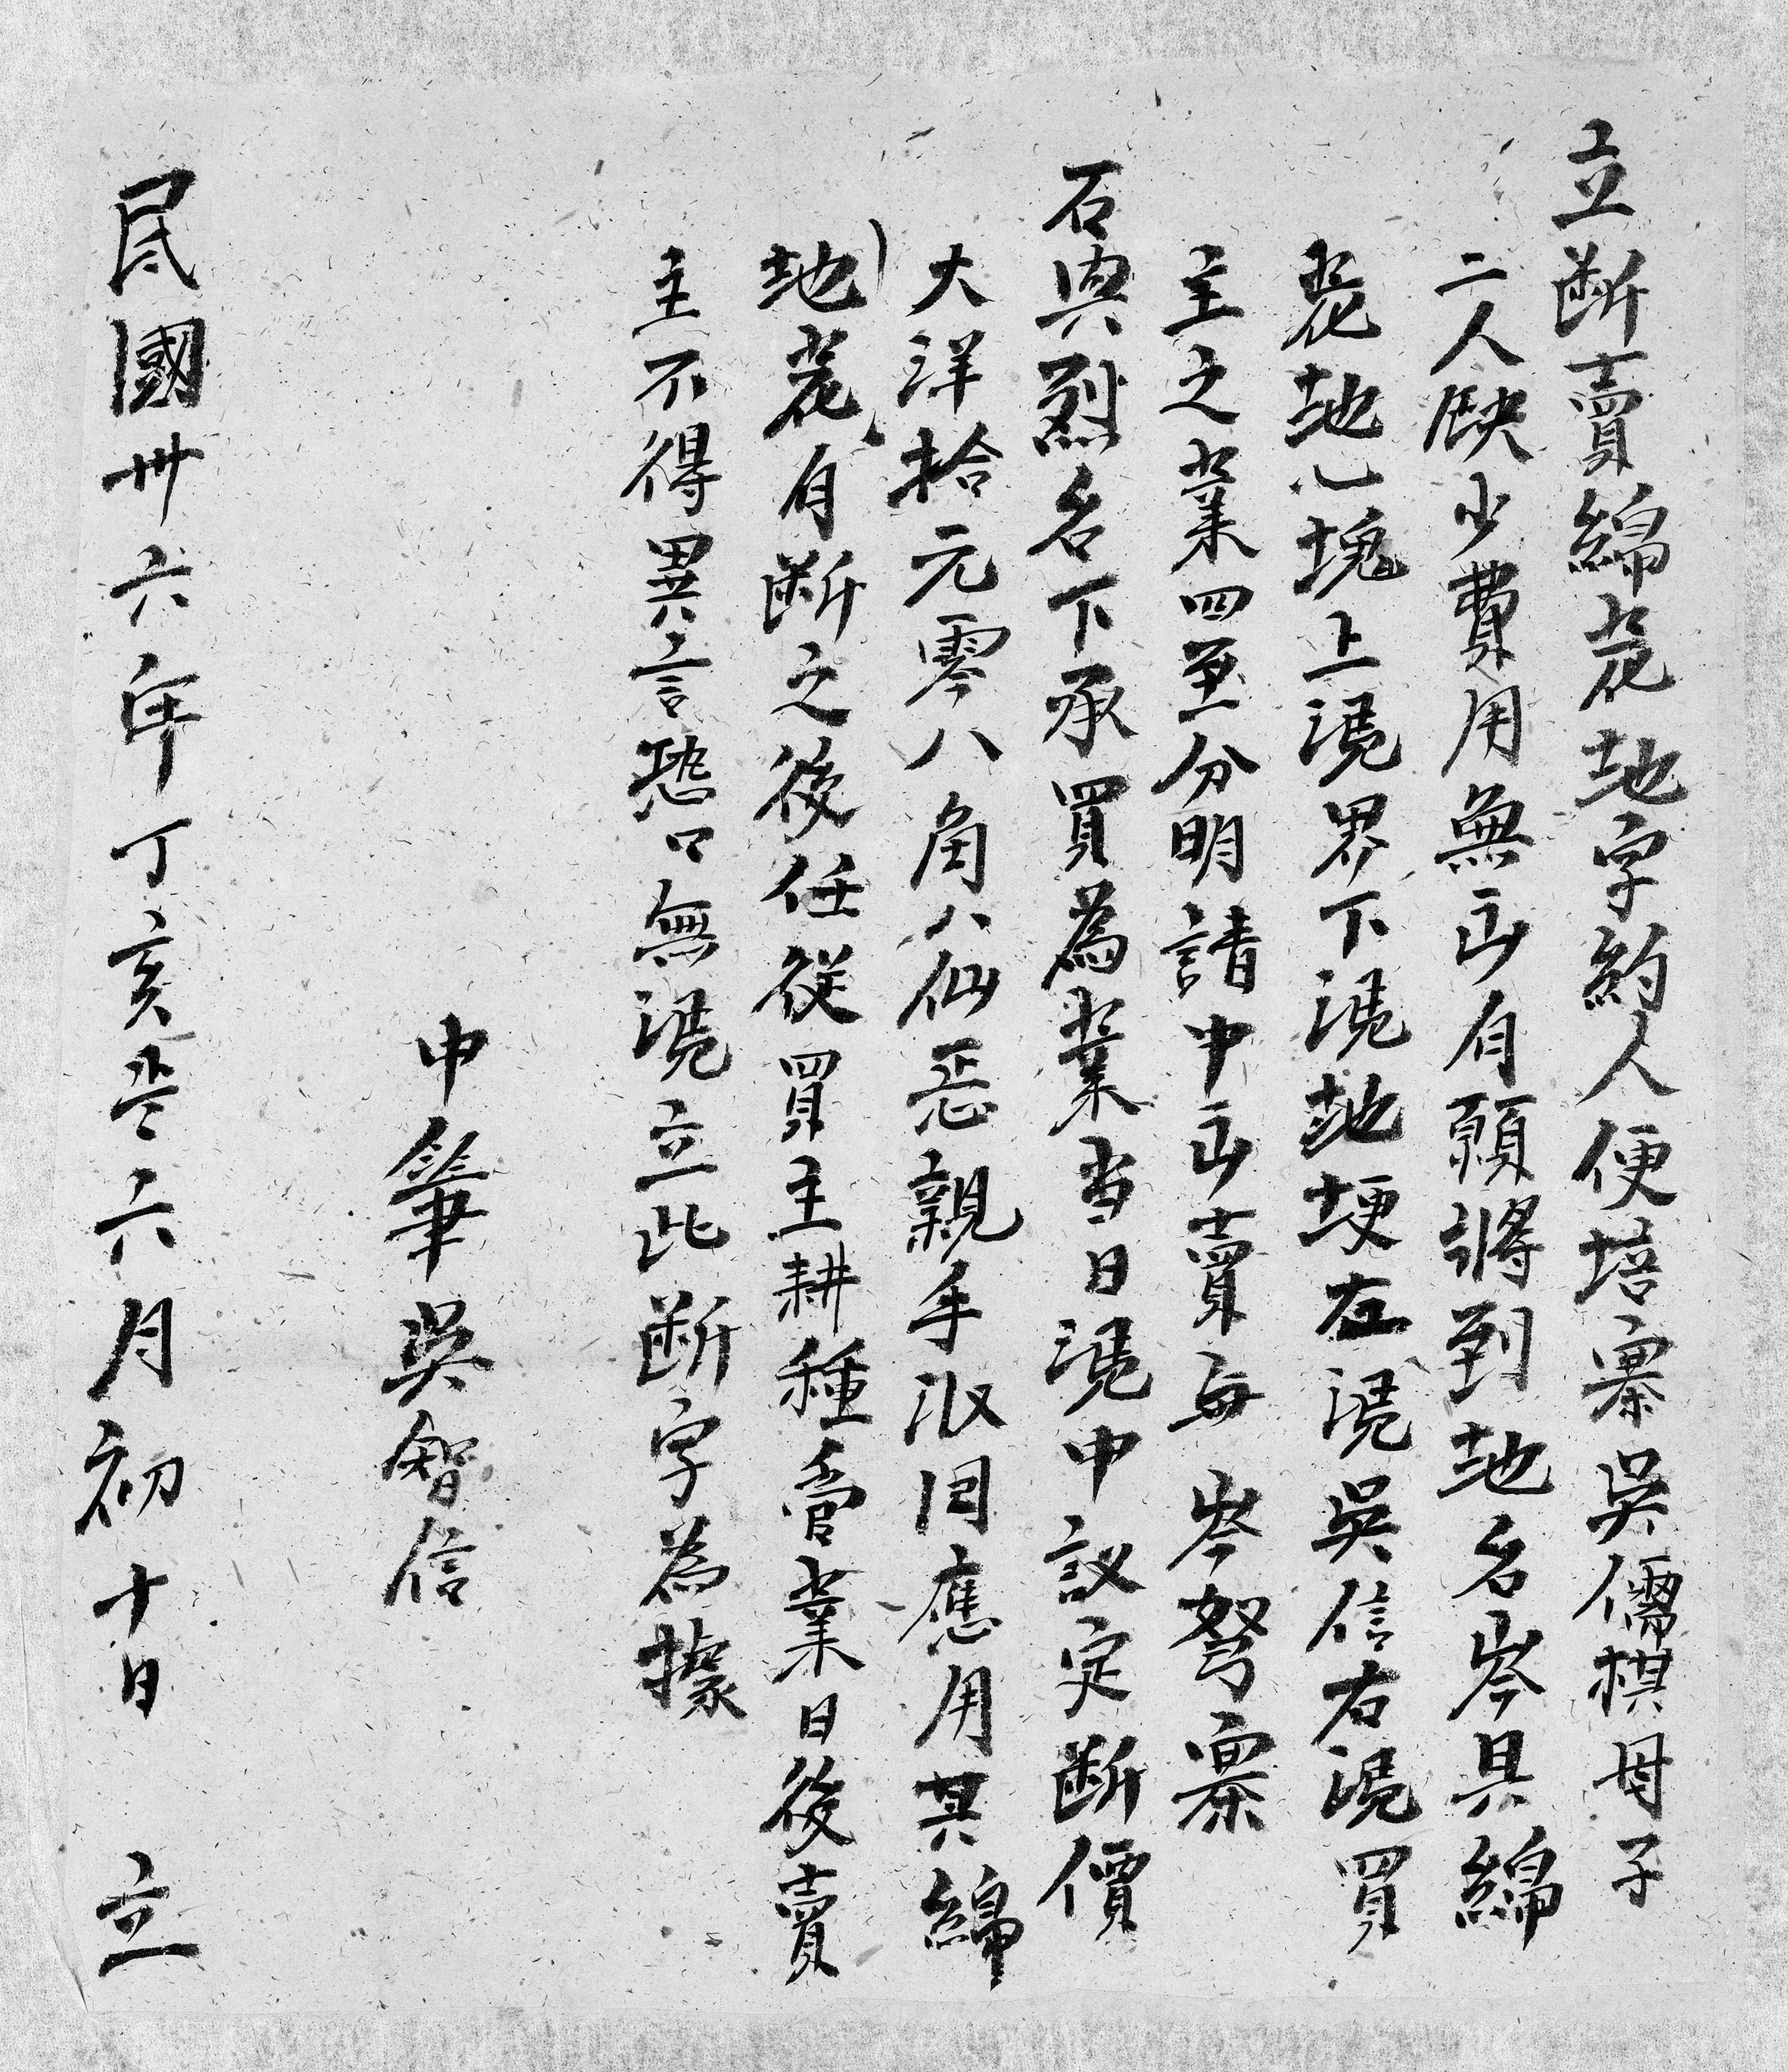 立断賣綿花地字約人便培寨吳儒棋母子
二人缺少費用無出自願將到地名岑具綿
花地一塊上凴界下凴地埂左凴吳信右凴買
主之業四至分明請中出賣與岑弩寨
石興烈名下承買為業当日凴中議定断價
大洋拾元零八角八仙正親手收回應用其綿
地花自断之後任從買主耕種管業日後賣
主不得異言恐口無凴立此断字為據
中筆吳智信
民國卅六年丁亥岁六月初十日 立